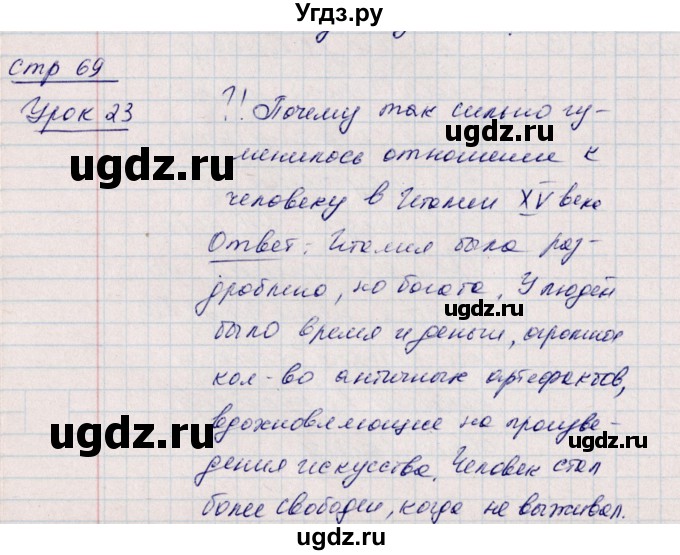 Угдз.ру
стр 69
Урок 23
?! Почему так сильно гу-
менилось отношение к
человеку в Италии XV века
Ответ: Италия была раз-
дроблено, но богата, У людей
было время и деньги, огромное
кол-во античных артефактов,
вдохновляющие на произве-
дения искусства. Человек стал
более свободен, когда не выживал.
ugdz.ru
ugdz.ru
ugdz.ru
ugdz.ru
ugdz.ru
ugdz.ru
ugdz.ru
ugdz.ru
ugdz.ru